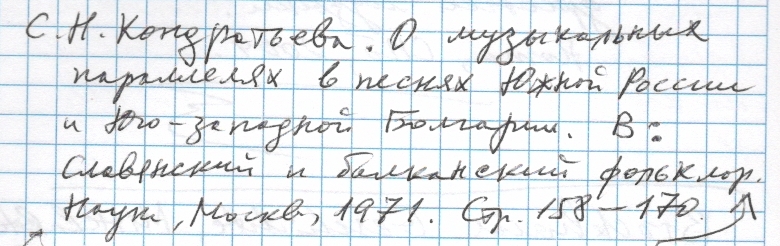 С.Н. Кондратьева. О музыкальных
параллелях в песнях Южной России
и Юго-западной Болгарии. В:
Славянский и балканский фольклор.
Наука, Москва, 1971. Стр. 158-170.